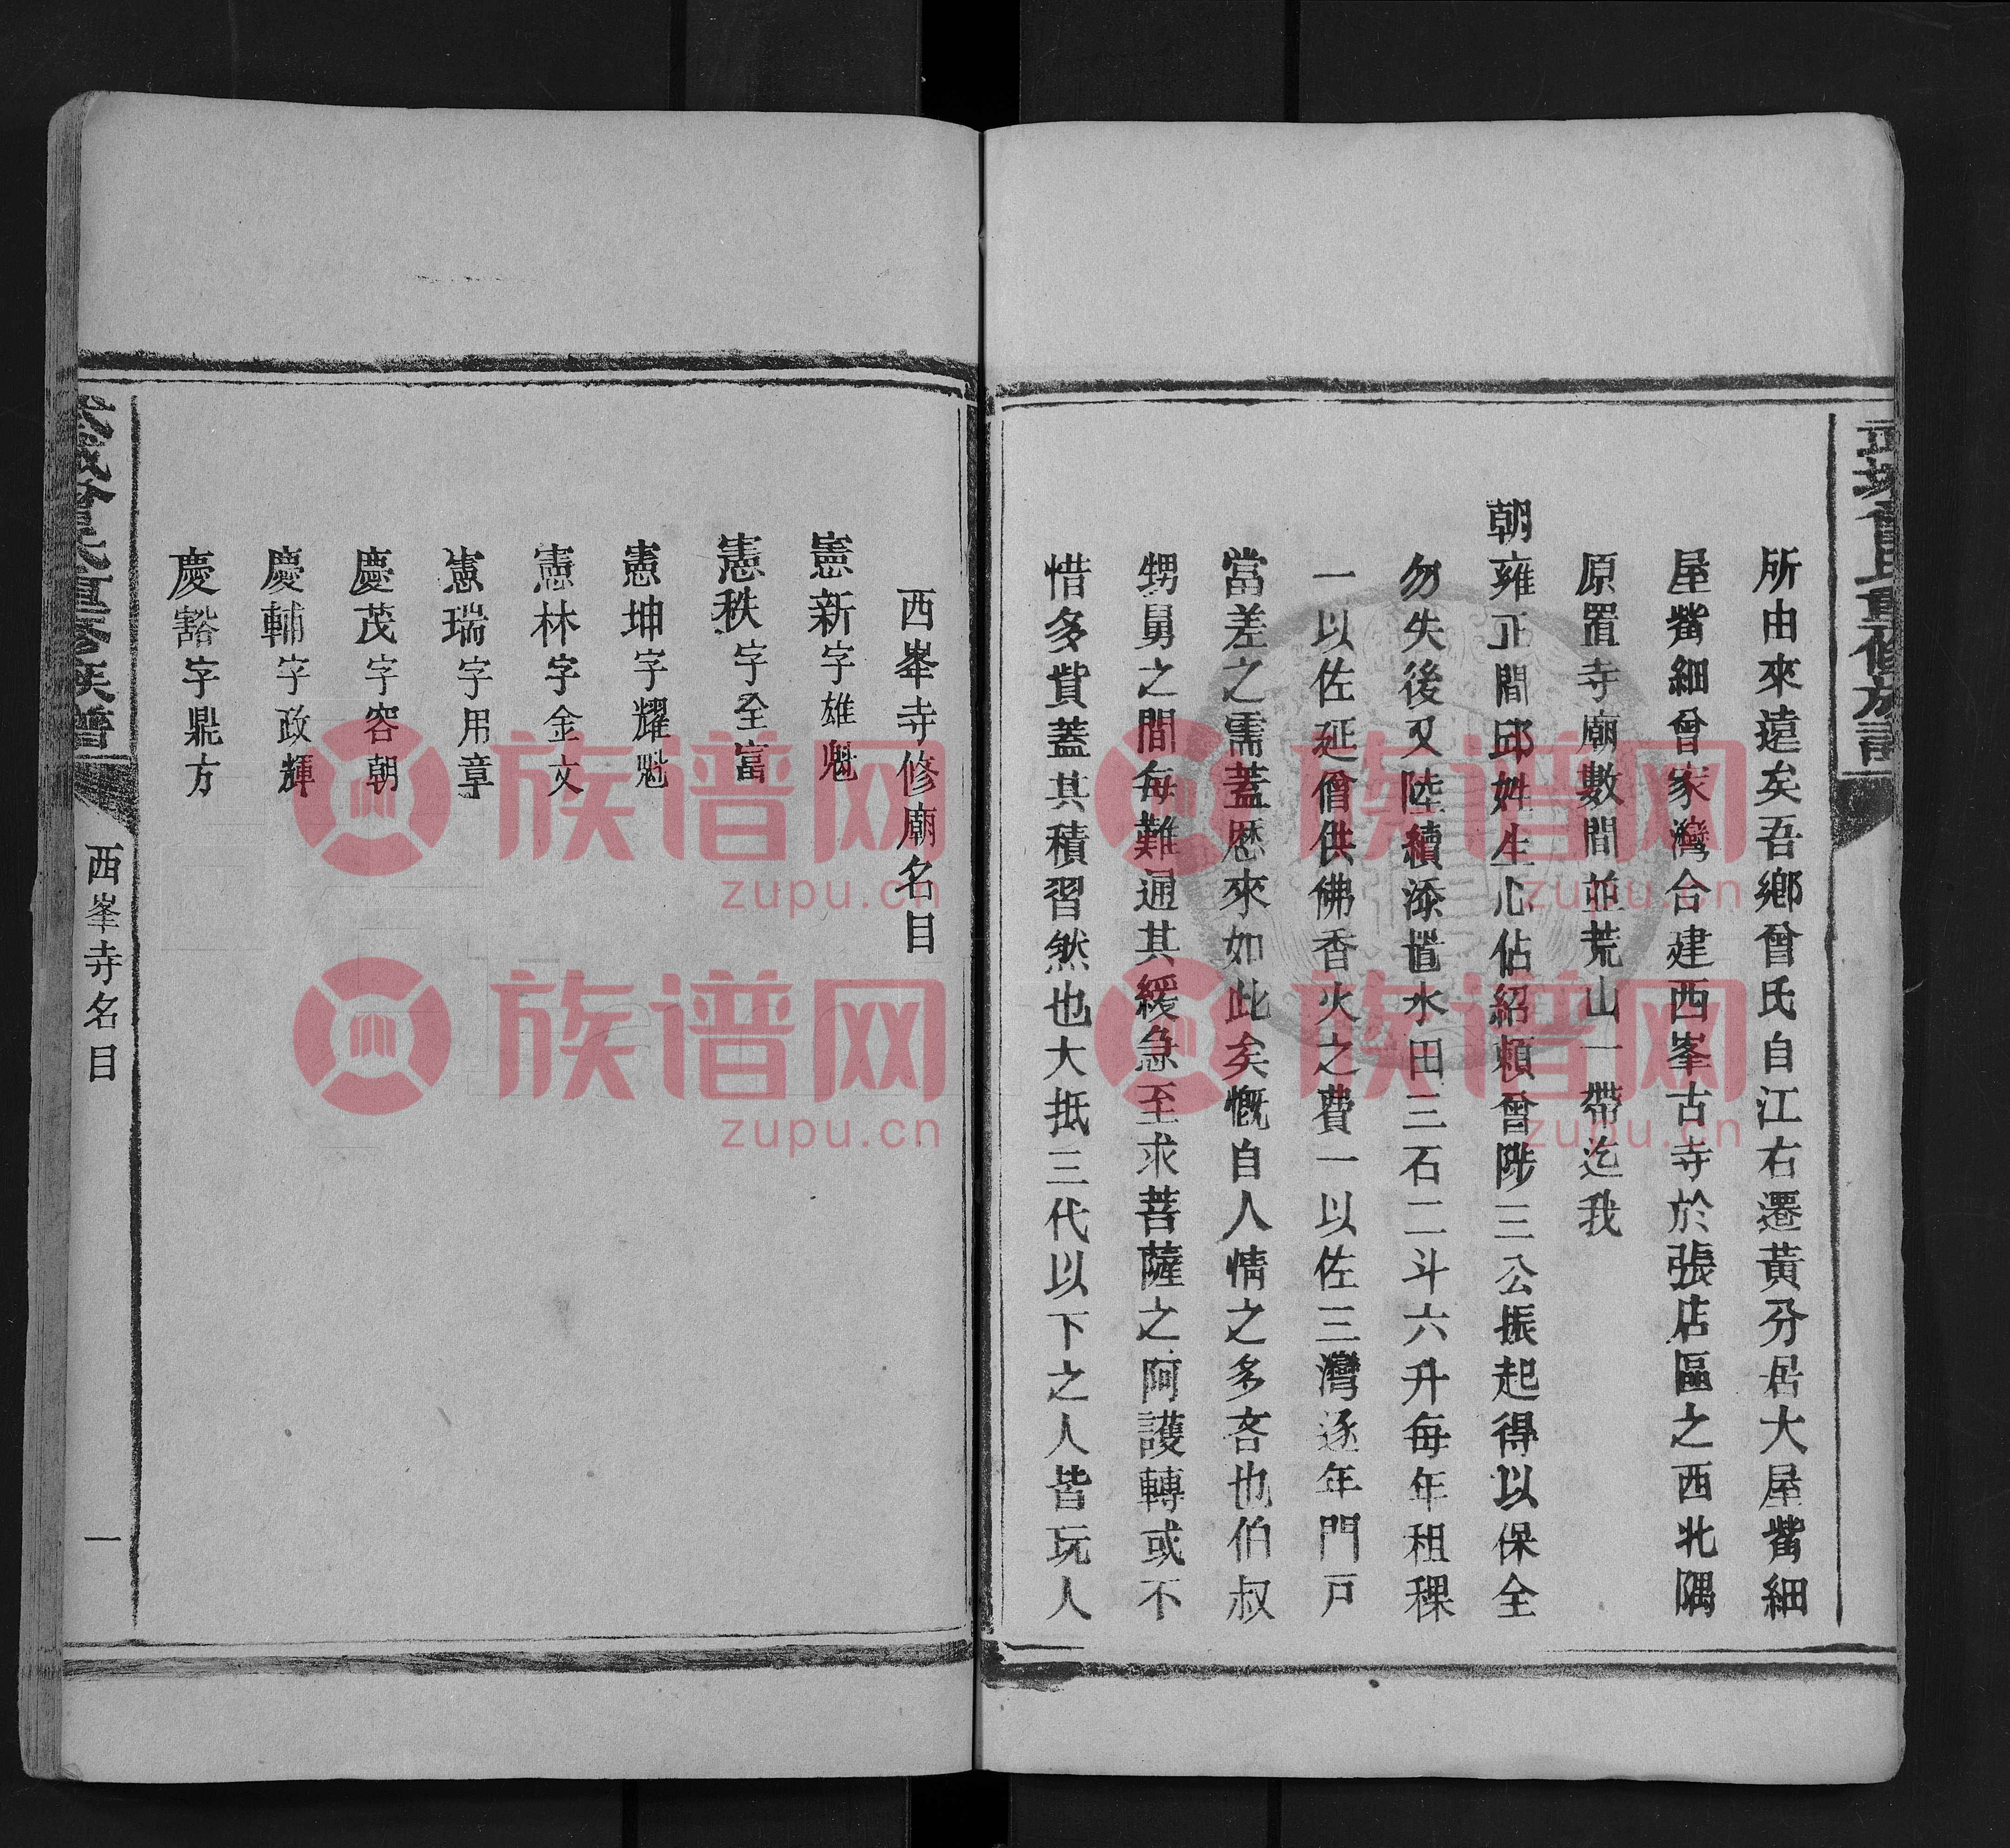 所由來遠矣吾鄉曾氏自江右遷黃分居大屋觜細
屋觜細曾家灣合建西峯古寺於張店區之西北隅
原置寺廟數間並荒山一帶迄我
朝雍正間邱姓生心佔紹賴曾陟三公振起得以保全
勿失後又陸續添置水田三石二斗六升每年租稞
一以佐延僧供佛香火之費一以佐三灣逐年門戸
當差之需蓋歷來如此矣慨自人情之多吝也伯叔
甥舅之間每難通其緩急至求菩薩之阿護轉或不
惜多貲蓋其積習然也大抵三代以下之人皆玩人
西峯寺修廟名目
憲新字雄魁
憲秩字全富
憲坤字耀魁
憲林字金文
憲瑞字用章
慶茂字容朝
慶輔字政輝
慶豁字鼎方
西峯寺名目
一
族谱网
zupu.cn
族谱网
zupu.cn
族谱网
zupu.cn
族谱网
zupu.cn